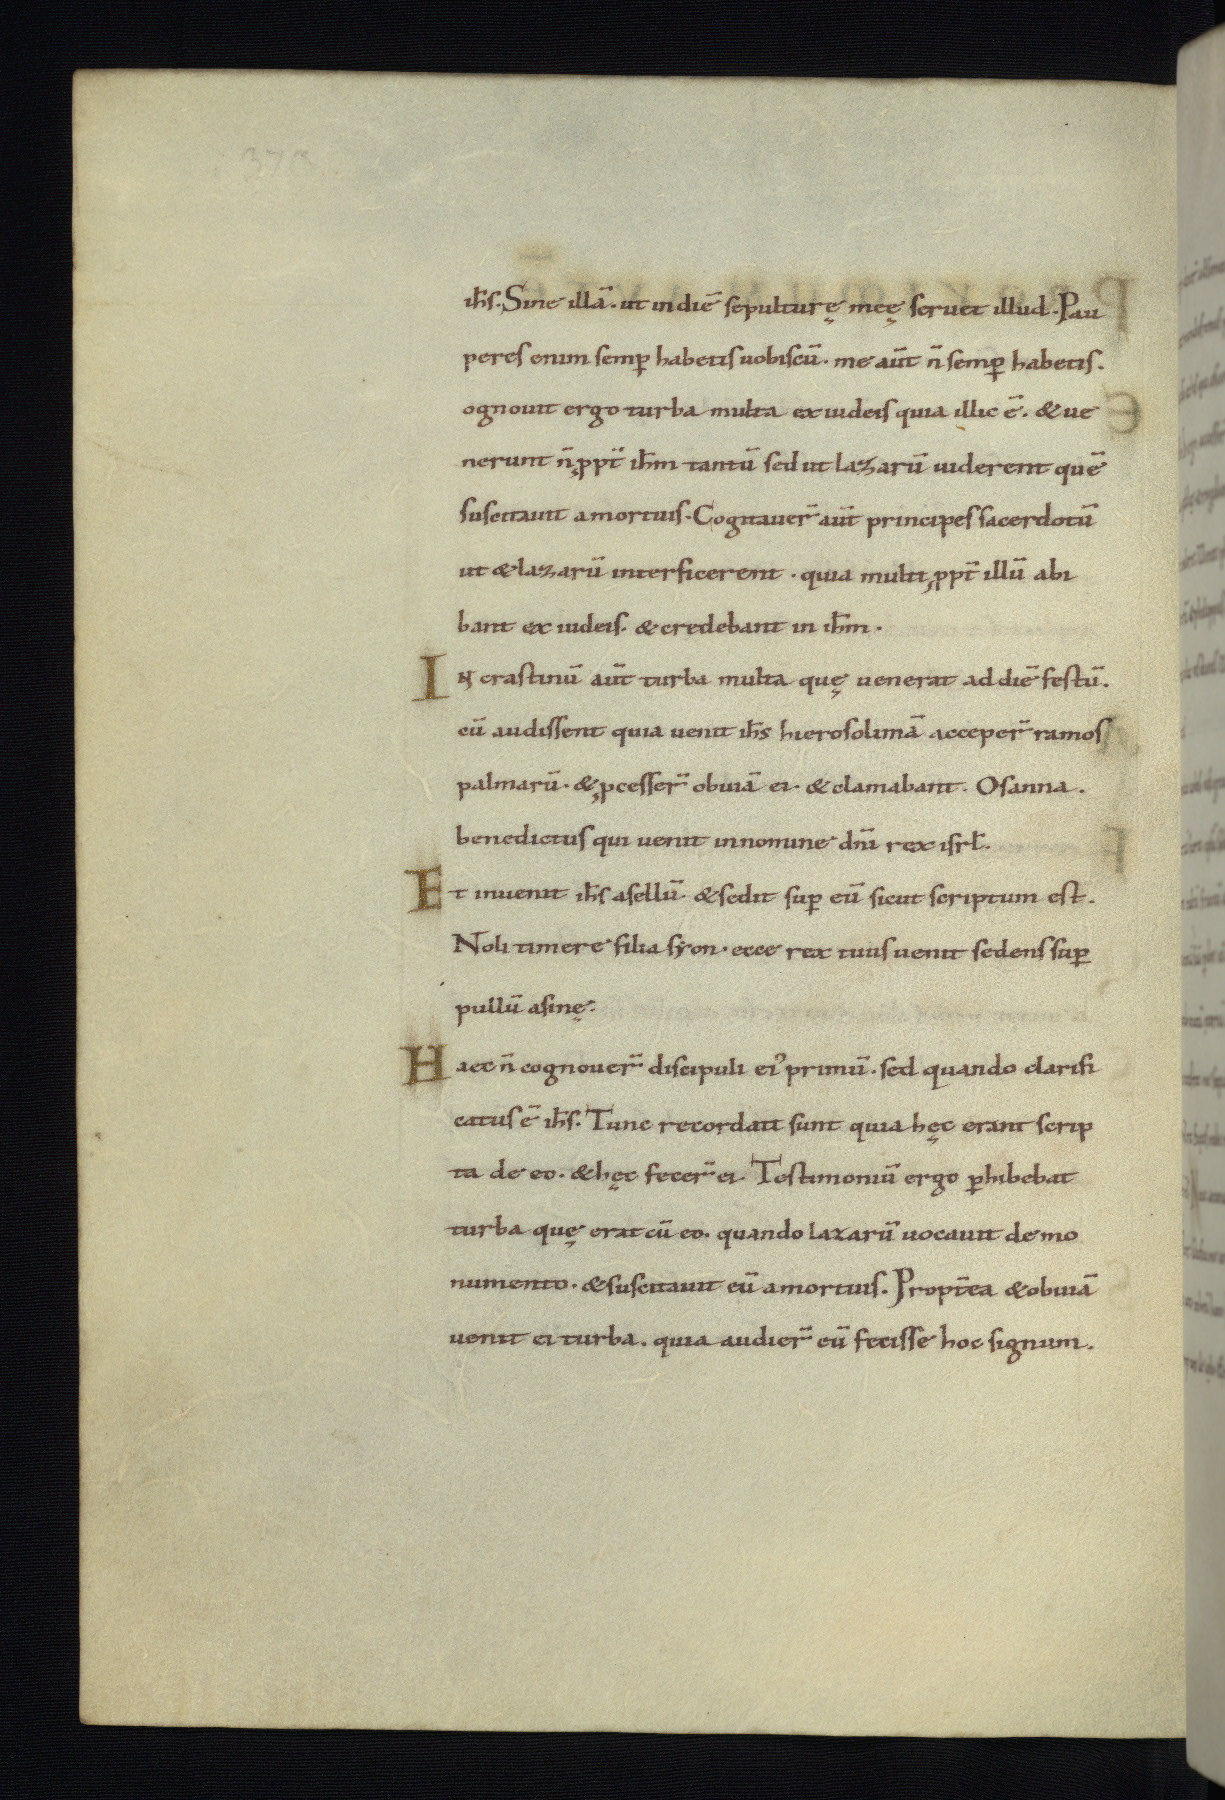 ih̅s. Sine illā. ut in diē sepulturę meę seruet illud. Pau
peres enim semꝑ habetis uobiscū. me aūt n̄ semꝑ habetis.
ognouit ergo turba multa ex iudeis quia illic ē. & ue
nerunt n̄ ꝓpt̄ ih̅m tantū sed ut lazarū uiderent quē
suscitauit a mortuis. Cogitauer̄ aūt principes sacerdotū
ut & lazarū interficerent. quia multi ꝓpt̄ illū abi
bant ex iudeis. & credebant in ih̅m.
IN crastinū aūt turba multa quę uenerat ad diē festū.
cū audissent quia uenit ih̅s hierosolimā acceper̄ ramos
palmarū. & ꝓcesser̄ obuiā ei. & clamabant. Osanna.
benedictus qui uenit in nomine dn̄i rex isrł.
Et inuenit ih̅s asellū & sedit suꝑ eū sicut scriptum est.
Noli timere filia sẏon. ecce rex tuus uenit sedens suꝑ
pullū asinę.
Haec n̄ cognouer̄ discipuli ei᾽ primū. sed quando clarifi
catus ē ih̅s. Tunc recordati sunt quia hęc erant scrip
ta de eo. & hęc fecer̄ ei. Testimoniū ergo ꝑhibebat
turba quę erat cū eo. quando lazarū uocauit de mo
numento. & suscitauit eū a mortuis. Propt̄ea & obuiā
uenit ei turba. quia audier̄ eū fecisse hoc signum.